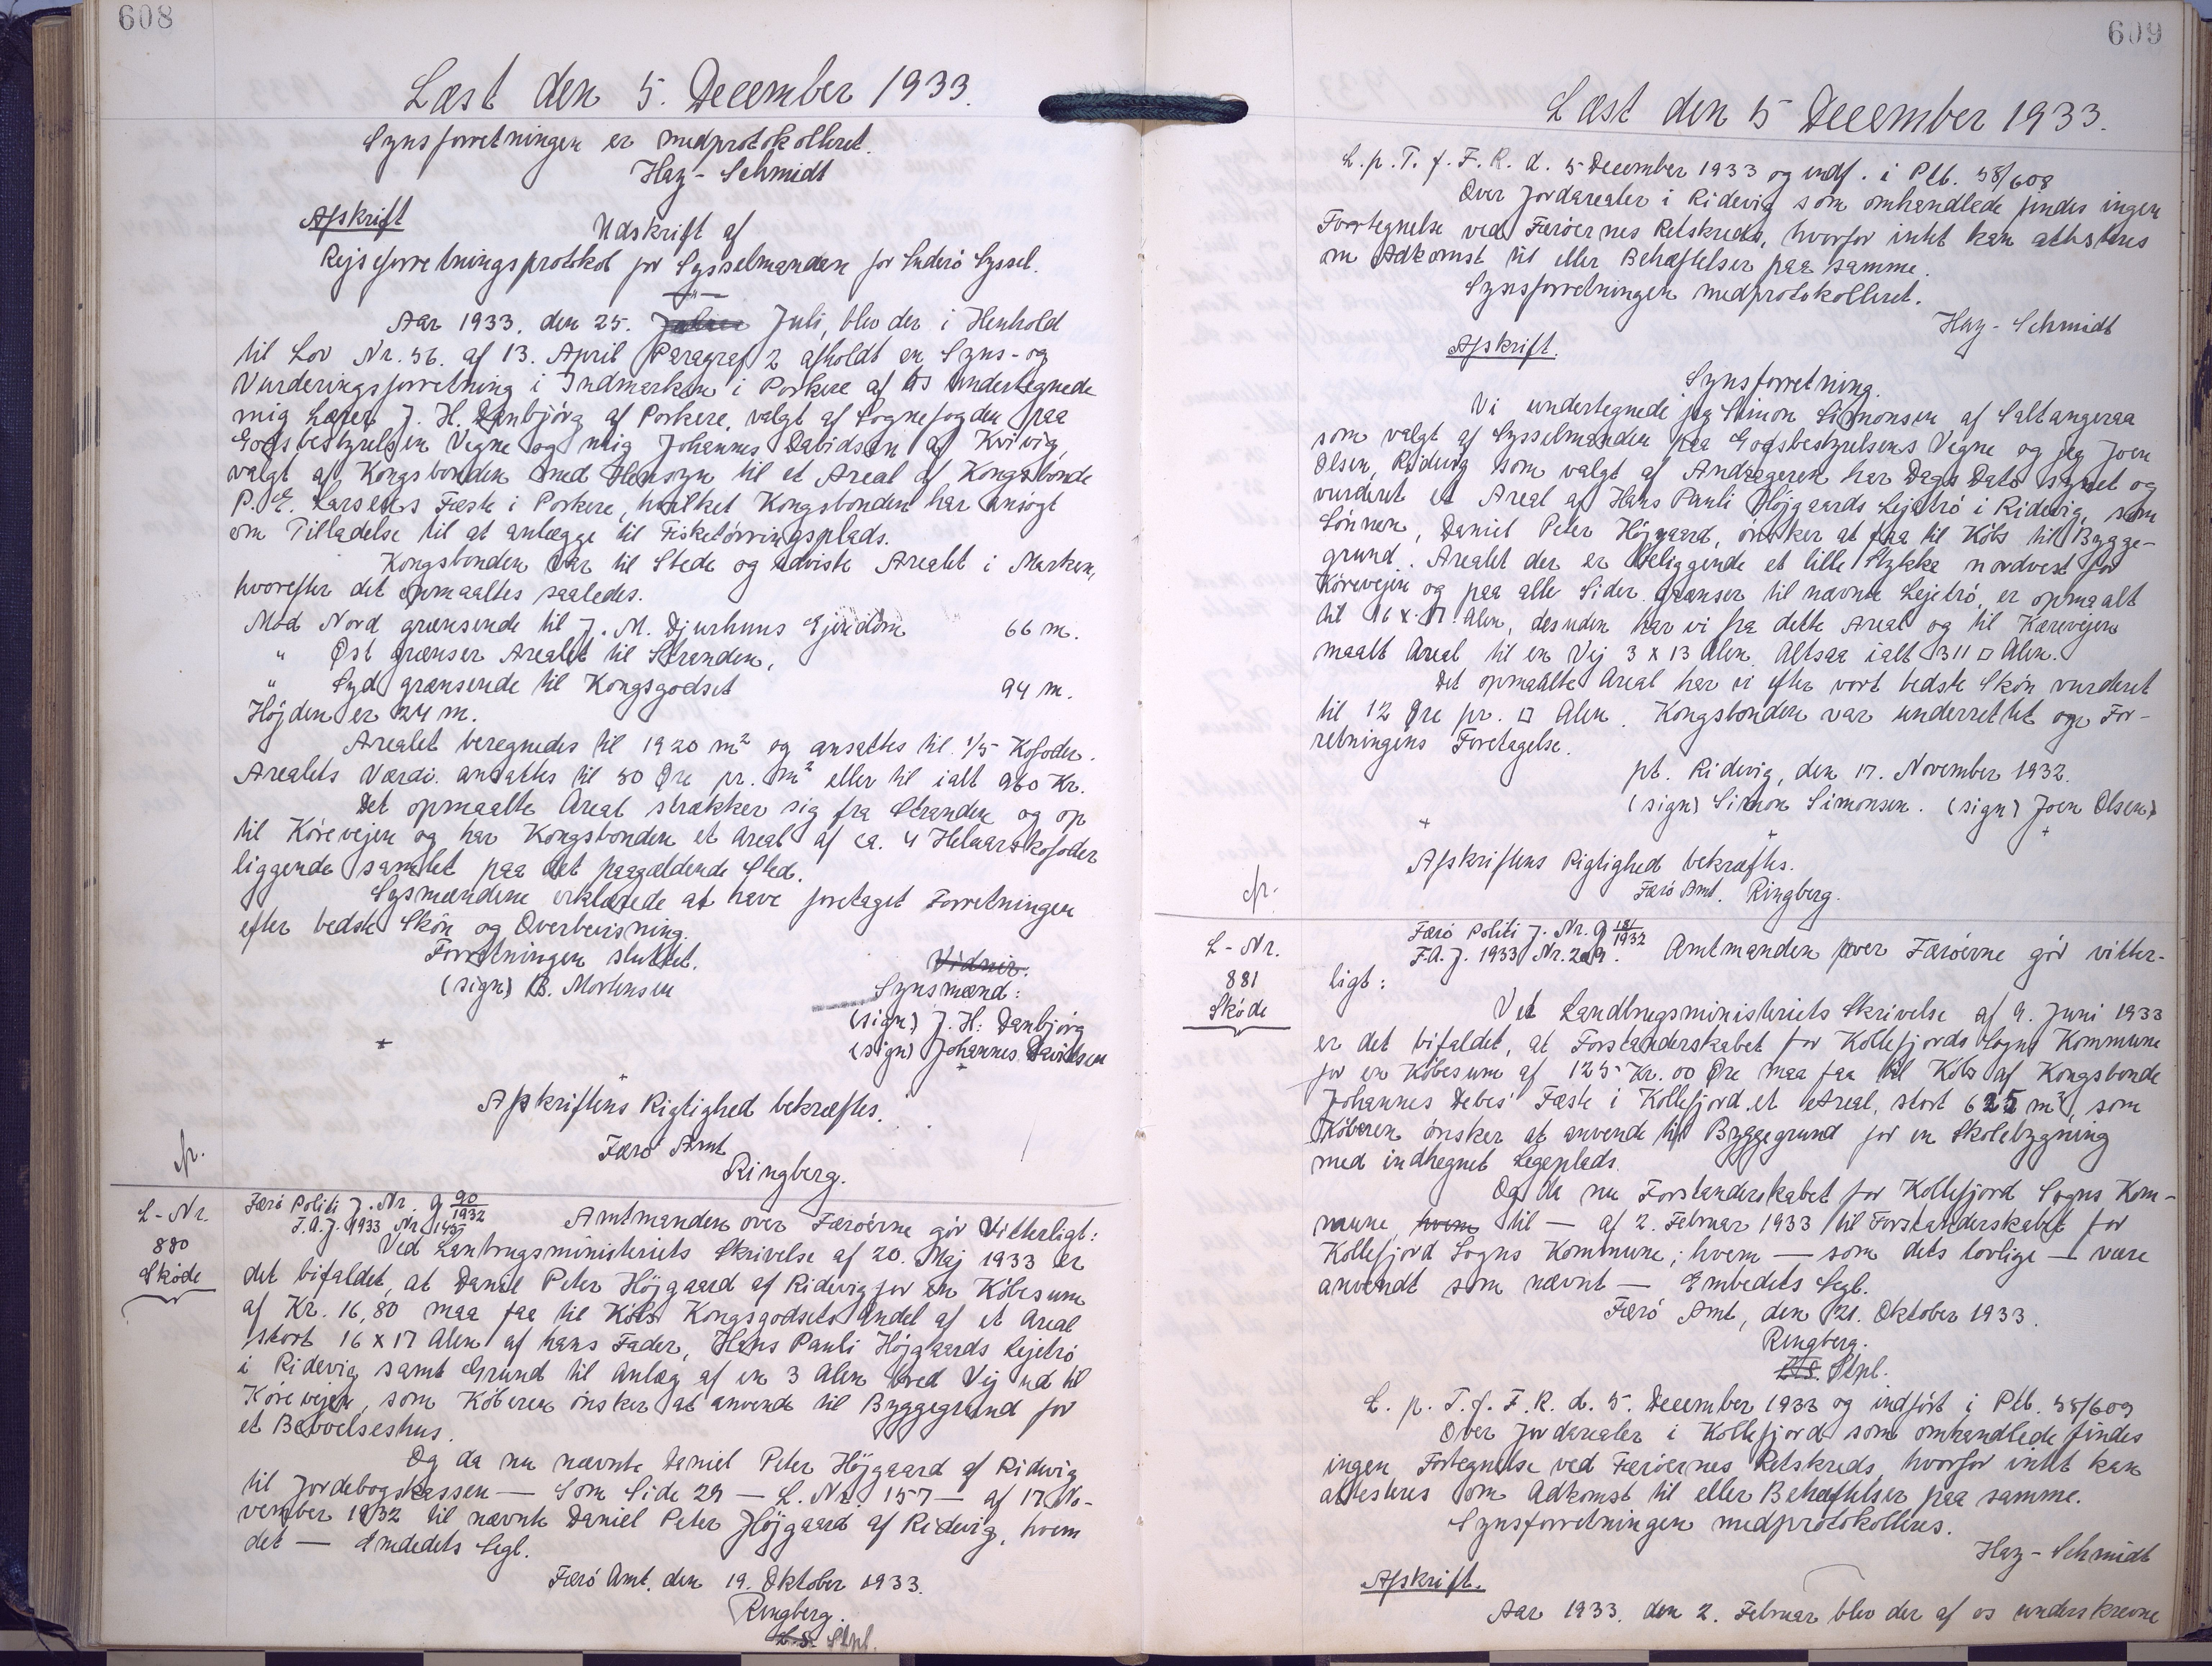 608
Læst den 5. December 1933.
Synsforretningen er medprotokolleret.
Hay-Schmidt
Afskrift
Udskrift af
Rejseforretningsprotokol for Sysselmanden for Suderö Syssel.
Aar 1933, den 25. Juli, blev der i Henhold
til Lov Nr. 56. af 13. April Paragraf 2 afholdt en Syns- og
Vurderingsforretning i Indmarken i Porkere af os undertegnede
mig Lærer J. H. Danbjörg af Porkere, valgt af Sognefogden paa
Godsbestyrelsen Vegne og mig Johannes Davidsen af Kvivig,
valgt af Kongsbonden med Hensyn til et Areal af Kongsbonde
P. E. Larsens Fæste i Porkere, hvilket Kongsbonden har ansøgt
om Tilladelse til at anlægge til Fisketörringsplads.
Kongsbonden var til Stede og udviste Arealet i Marken,
hvorefter det opmaaltes saaledes.
Mod Nord grænsende til J. M. Djurhuus Ejendom 66 m.
" Øst grænser Arealet til Stranden,
" Syd grænsende til Kongsgodset 94 m.
Höjden er 24 m.
Arealet beregnedes til 1920 m² og ansattes til 1/5 Kofoder.
Arealets Værdi ansattes til 50 Øre pr. m² eller til ialt 960 Kr.
Det opmaalte Areal strækker sig fra Stranden og op
til Körevejen og har Kongsbonden et Areal af ca. 4 Helaarskofoder
liggende samlet paa det paagældende Sted.
Synsmændene erklærede at have foretaget Forretningen
efter bedste Skön og Overbevisning.
Forretningen sluttet.
Vidner.
(sign) B. Mortensen
Synsmænd:
(sign) J. H. Danbjörg
(sign) Johannes Davidsen
Afskriftens Rigtighed bekræftes.
Færö Amt
Ringberg.
L-Nr.
880
Sköde
Færö Politi J. Nr. 9 90/1932
F.A.J. 1933 Nr. 145 Amtmanden over Færöerne gör Vitterligt:
Ved Lanbrugsministeriets Skrivelse af 20. Maj 1933 er
det bifaldet, at Daniel Peter Höjgaard af Ridevig for en Köbesum
af Kr. 16,80 maa faa til Köbs Kongsgodsets Andel af et Areal
stort 16 x 17 Alen af hans Fader, Hans Pauli Höjgaards Lejetrö
i Ridevig samt Grund til Anlæg af en 3 Alen bred Vej ud til
Körevejen, som Köberen önsker at anvende til Byggegrund for
et Beboelseshus.
Og da nu nævnte Daniel Peter Höjgaard af Ridevig
til Jordebogskassen — Som Side 29 — L. Nr. 157 — af 17 No-
vember 1932 til nævnte Daniel Peter Höjgaard af Ridevig, hvem
det — Emdedets Segl.
Færö Amt. den 19. Oktober 1933.
Ringberg.
L.S. Stpl.
609
Læst den 5 December 1933.
L. p. T. f. F. R. d. 5 December 1933 og indf. i Ptb. 58/608
Over Jordarealer i Ridevig som omhandlede findes ingen
Fortegnelse ved Færöernes Retskreds, hvorfor intet kan attesteres
om Adkomst til eller Behæftelser paa samme.
Synsforretningen medprotokolleret.
Hay-Schmidt
Afskrift.
Synsforretning.
Vi undertegnede jeg Simon Simonsen af Saltangeraa
som valgt af Sysselmanden paa Godsbestyrelsens Vegne og jeg Joen
Olsen, Ridevig som valgt af Andrageren har Dags Dato synet og
vurderet et Areal af Hans Pauli Höjgaards Lejetrö i Ridevig, som
Sönnen, Daniel Peter Höjgaard, önsker at faa til Köbs til Bygge-
grund. Arealet der er beliggende et lille Stykke nordvest for
Körevejen og paa alle Sider grænser til nævnte Lejetrö, er opmaalt
til 16 x 17 Alen, desuden har vi fra dette Areal og til Kørevejen
maalt Areal til en Vej 3 x 13 Alen. Altsaa ialt 311 □ Alen.
Det opmaalte Areal har vi efter vort bedste Skön vurderet
til 12 Øre pr. □ Alen. Kongsbonden var underrettet om For-
retningens Foretagelse.
pt. Ridevig, den 17. November 1932.
(sign) Simon Simonsen. (sign) Joen Olsen
Afskriftens Rigtighed bekræftes.
Færö Amt. Ringberg.
L-Nr.
881
Sköde
Færö Politi J. Nr. 9 181/1932
F.A.J. 1933 Nr. 209. Amtmanden over Færöerne gör vitter-
ligt:
Ved Landbrugsministeriets Skrivelse af 9. Juni 1933
er det bifaldet, at Forstanderskabet for Kollefjords Sogns Kommune
for en Köbesum af 125 Kr. 00 Øre maa faa til Köbs af Kongsbonde
Johannes Debes' Fæste i Kollefjord et Areal, stort 625 m², som
Köberen önsker at anvende til Byggegrund for en Skolebygning
med indhegnet Legeplads.
Og da nu Forstanderskabet for Kollefjord Sogns Kom-
mune, hvem til — af 2. Februar 1933 til Forstanderskabet for
Kollefjord Sogns Kommune, hvem — som dets lovlige — være
anvendt som nævnt — Embedets Segl.
Færö Amt, den 21. Oktober 1933.
Ringberg.
L.S. Stpl.
L. p. T. f. F. R. d. 5. December 1933 og indført i Ptb. 58/609
Over Jordarealer i Kollefjord som omhandlede findes
ingen Fortegnelse ved Færöernes Retskreds, hvorfor intet kan
attesteres om Adkomst til eller Behæftelser paa samme.
Synsforretningen medprotokolleres.
Hay-Schmidt
Afskrift.
Aar 1933. den 2. Februar blev der af os underskrevne